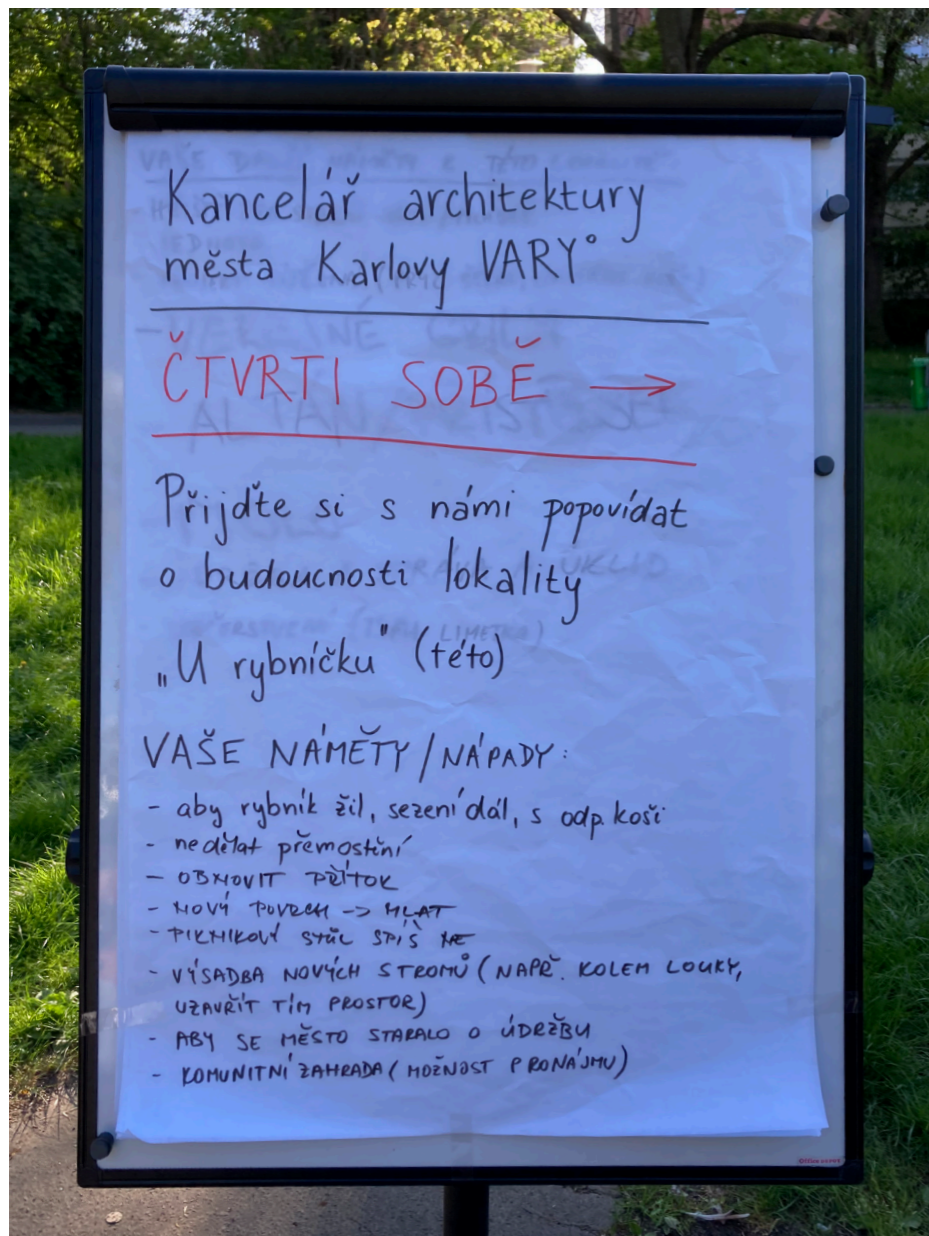 Kancelář architektury
města Karlovy VARY°
ČTVRTI SOBĚ →
Přijďte si s námi popovídat
o budoucnosti lokality
„U rybníčku" (této)
VAŠE NÁMĚTY/NÁPADY:
- aby rybník žil, sezení dál, s odp. koši
- nedělat přemostění
- OBNOVIT PŘÍTOK
- NOVÝ POVRCH -> MLAT
- PIKNIKOVÝ STŮL SPÍŠ NE
- VÝSADBA NOVÝCH STROMŮ (NAPŘ. KOLEM LOUKY,
UZAVŘÍT TÍM PROSTOR)
- ABY SE MĚSTO STARALO O ÚDRŽBU
- KOMUNITNÍ ZAHRADA (MOŽNOST PRONÁJMU)